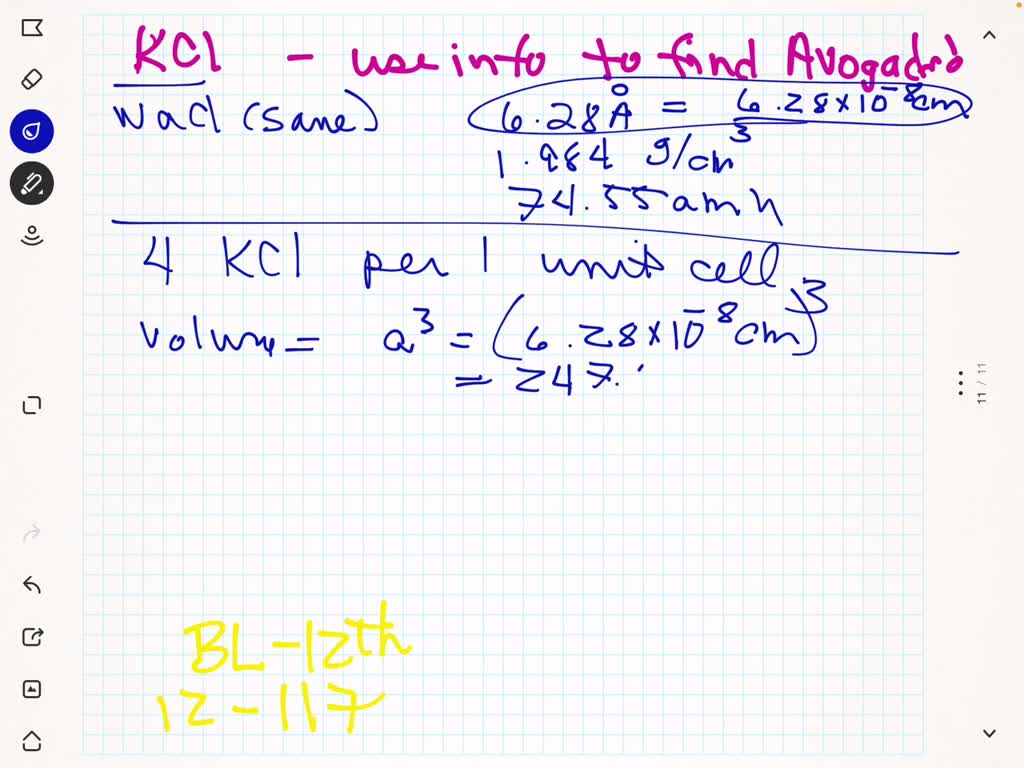 KCl - use info to find Avogadro
NaCl (same) 6.28 Å = 6.28 x 10⁻⁸ cm
1.984 g/cm³
74.55 amu
4 KCl per 1 unit cell
volume = a³ = (6.28 x 10⁻⁸ cm)³
= 247.
BL-12th
12-117
11 / 11